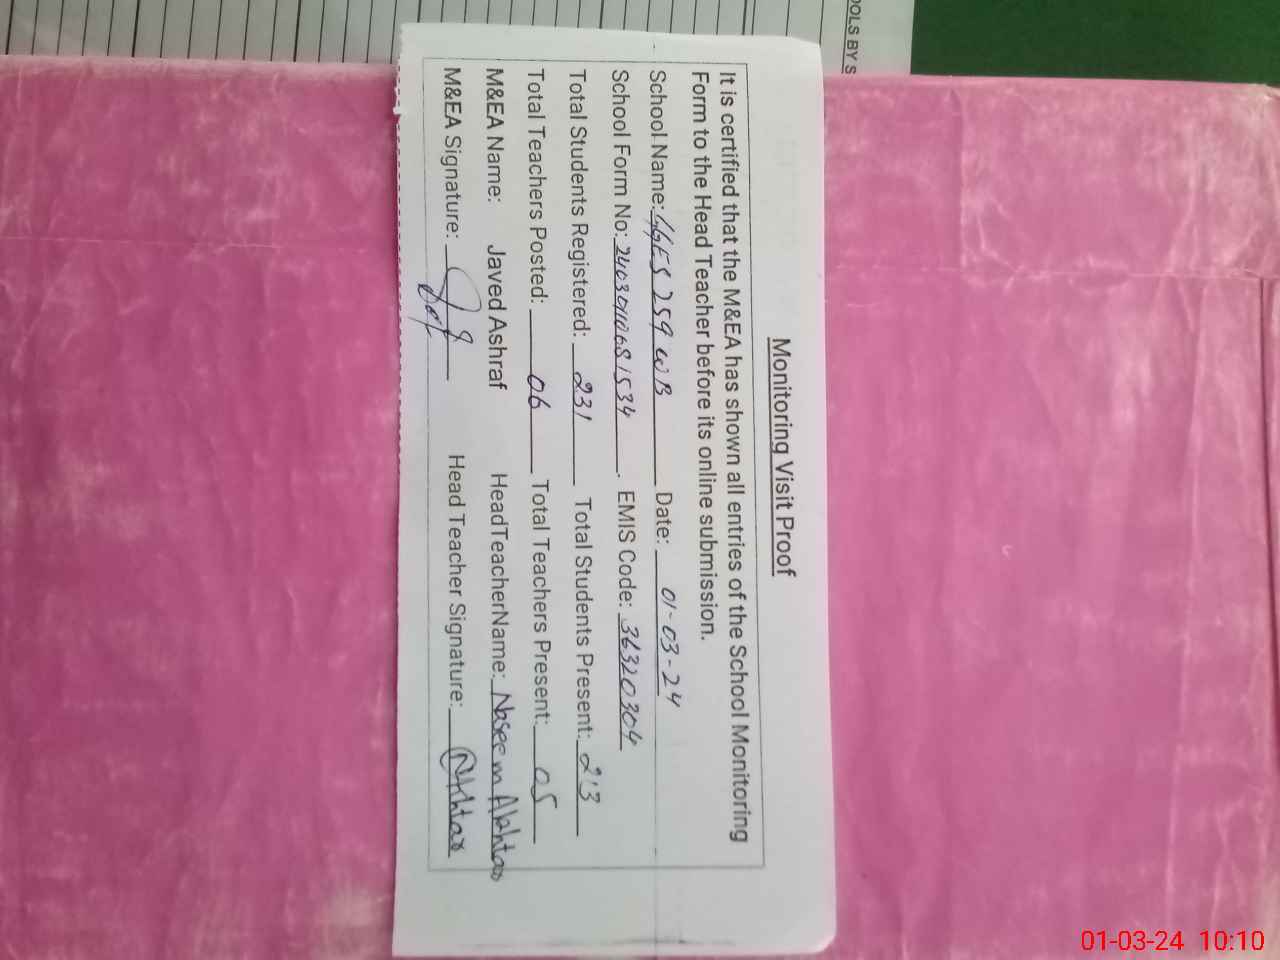 OOLS BY S
Monitoring Visit Proof
It is certified that the M&EA has shown all entries of the School Monitoring
Form to the Head Teacher before its online submission.
School Name: GGES 259 WB Date: 01-03-24
School Form No: 24030110681534. EMIS Code: 36320304
Total Students Registered: 231 Total Students Present: 213
Total Teachers Posted: 06 Total Teachers Present: 05
M&EA Name: Javed Ashraf HeadTeacherName: Naseem Akhtar
M&EA Signature: Head Teacher Signature: NAkhtar
01-03-24 10:10